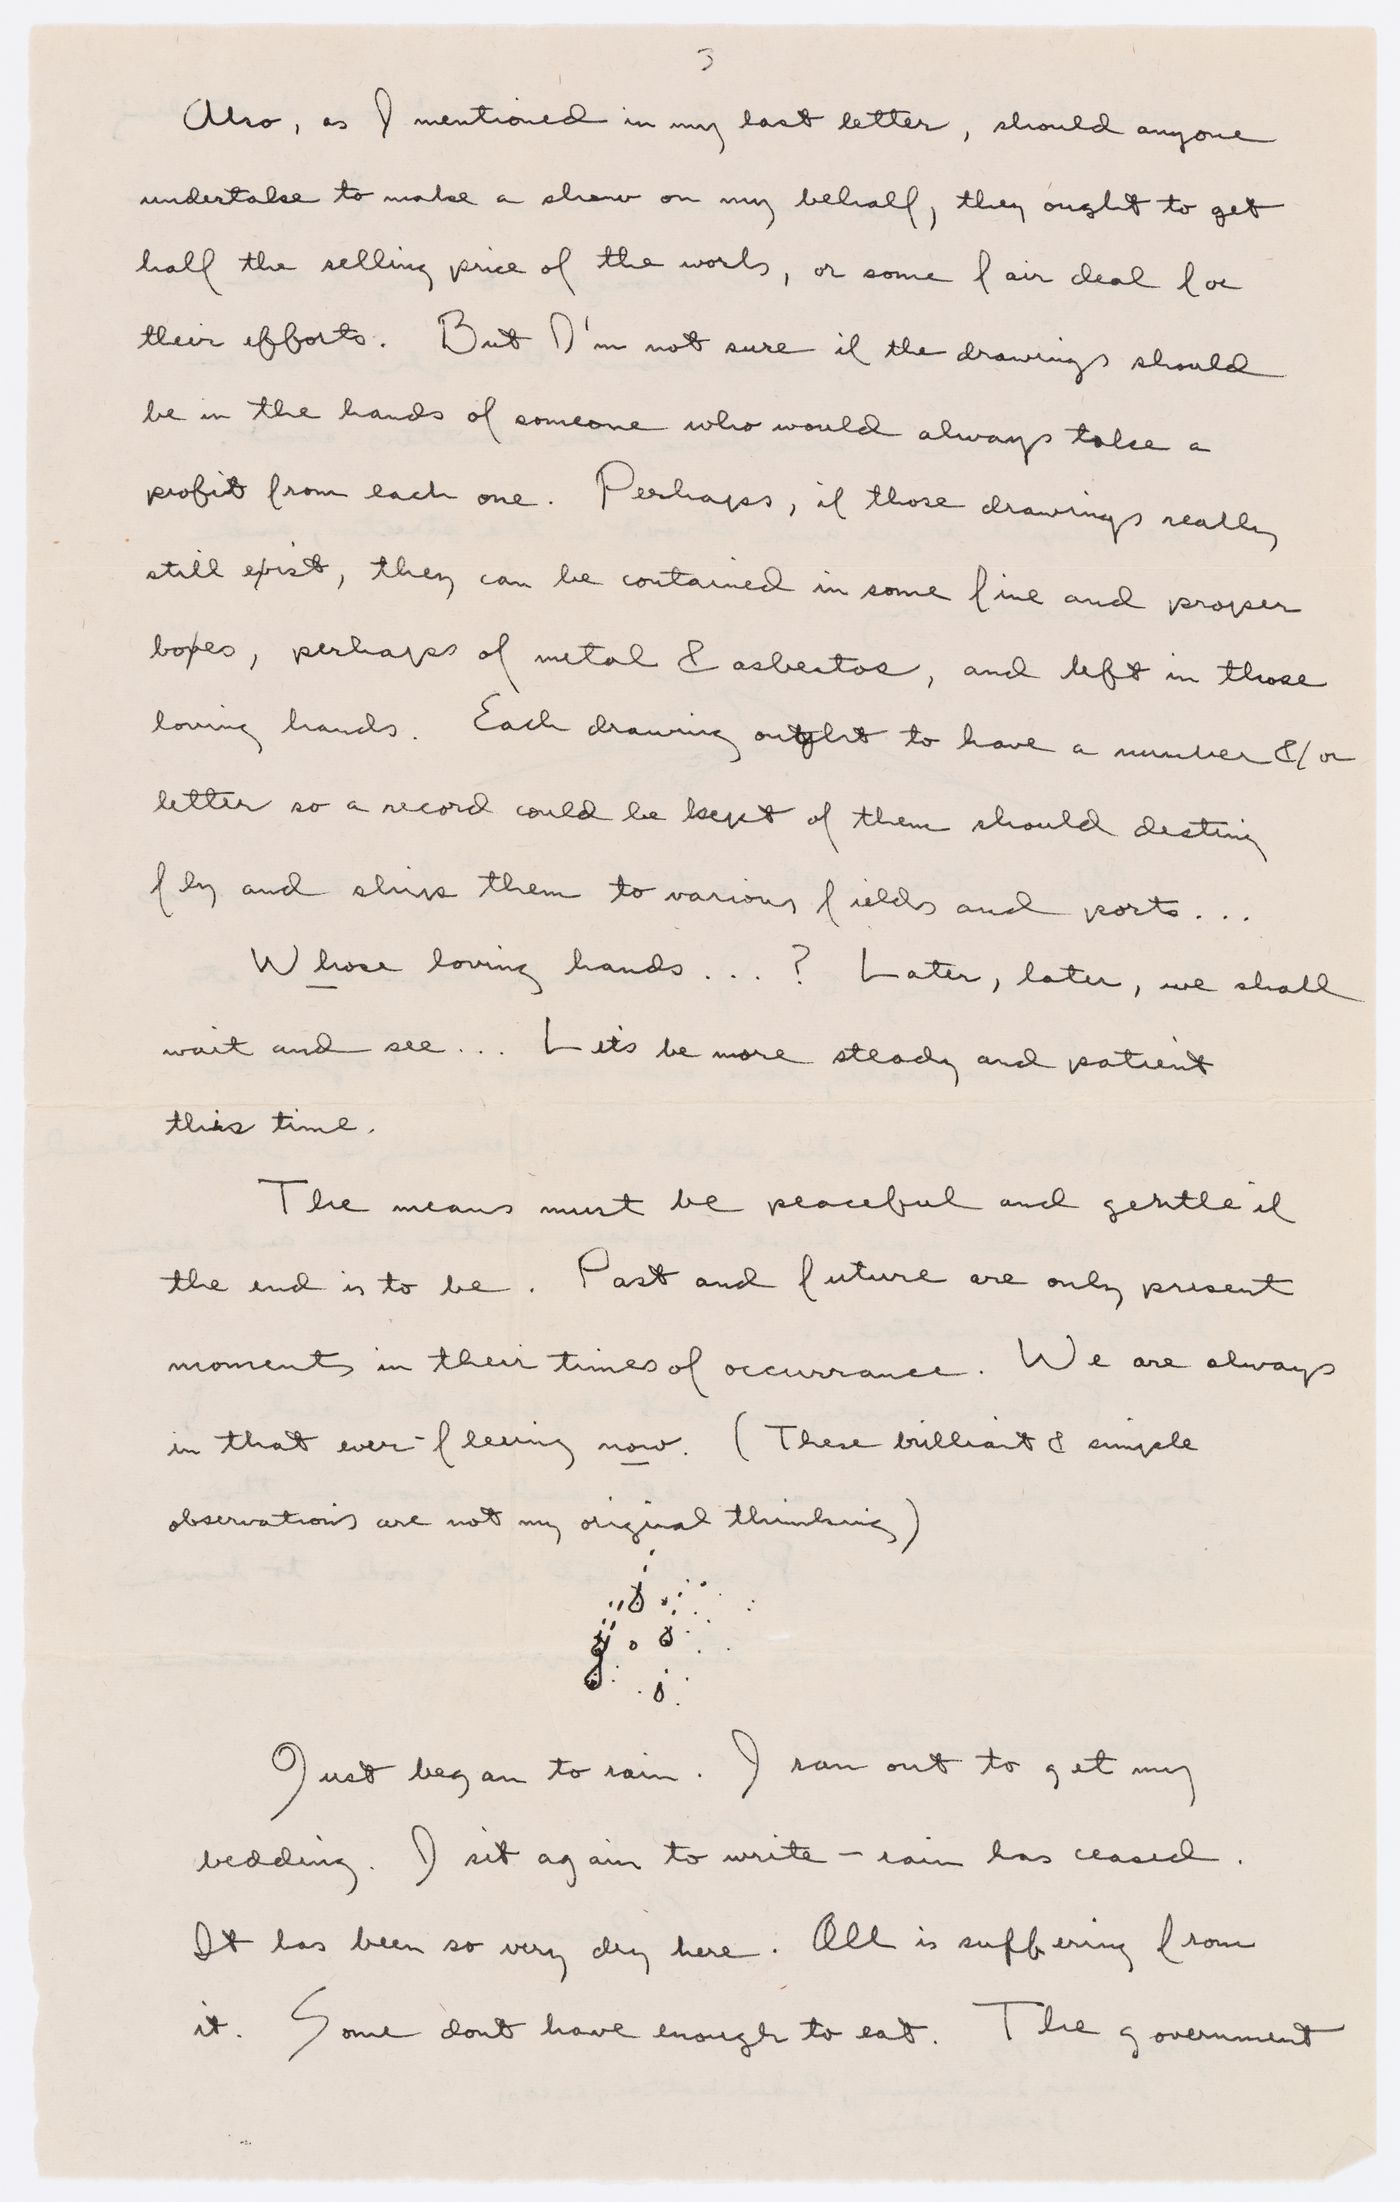 3
Also, as I mentioned in my last letter, should anyone
undertake to make a show on my behalf, they ought to get
half the selling price of the work, or some fair deal for
their efforts. But I'm not sure if the drawings should
be in the hands of someone who would always take a
profit from each one. Perhaps, if those drawings really
still exist, they can be contained in some fine and proper
boxes, perhaps of metal & asbestos, and left in those
loving hands. Each drawing ought to have a number &/or
letter so a record could be kept of them should destiny
fly and ships them to various fields and ports...
Whose loving hands...? Later, later, we shall
wait and see... Let's be more steady and patient
this time.
The means must be peaceful and gentle if
the end is to be. Past and future are only present
moments in their times of occurrance. We are always
in that ever-fleeing now. (These brilliant & simple
observations are not my original thinking)
Just began to rain. I ran out to get my
bedding. I sit again to write – rain has ceased.
It has been so very dry here. All is suffering from
it. Some dont have enough to eat. The government